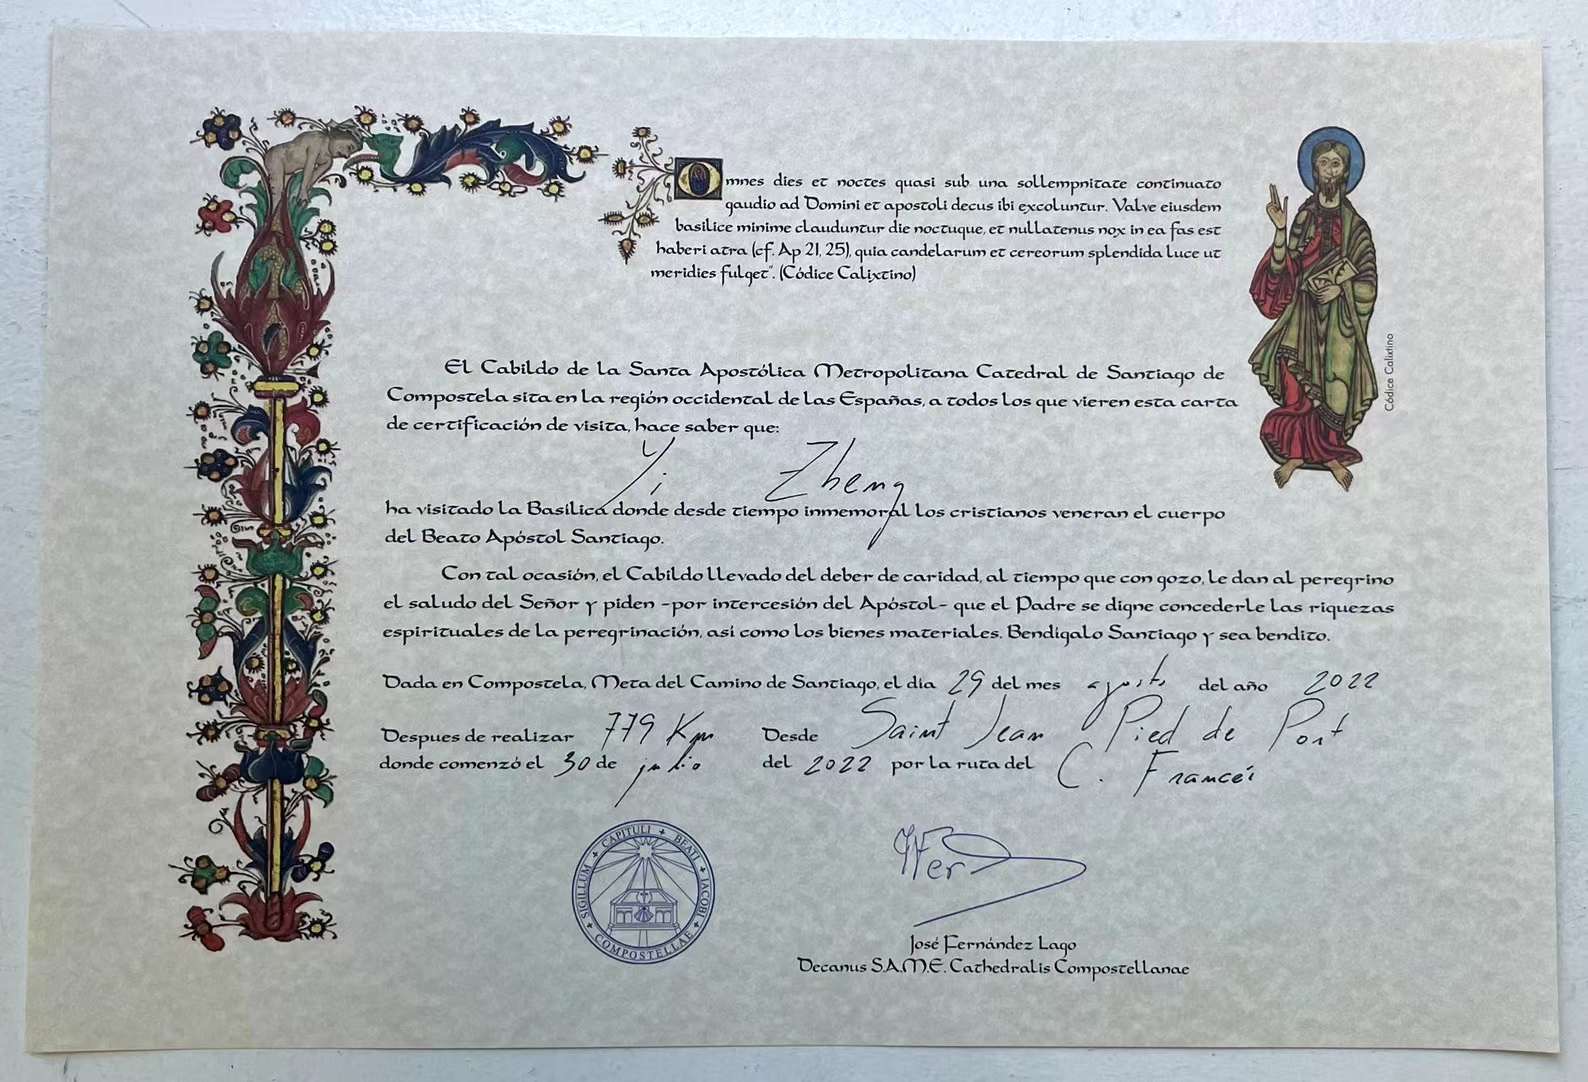 Omnes dies et noctes quasi sub una sollempnitate continuato
gaudio ad Domini et apostoli decus ibi excoluntur. Valve eiusdem
basilice minime clauduntur die noctuque, et nullatenus nox in ea fas est
haberi atra (cf. Ap 21, 25), quia candelarum et cereorum splendida luce ut
meridies fulget". (Códice Calixtino)
Códice Calixtino
El Cabildo de la Santa Apostólica Metropolitana Catedral de Santiago de
Compostela sita en la región occidental de las Españas, a todos los que vieren esta carta
de certificación de visita, hace saber que:
Yi Zheng
ha visitado la Basílica donde desde tiempo inmemorial los cristianos veneran el cuerpo
del Beato Apóstol Santiago.
Con tal ocasión, el Cabildo llevado del deber de caridad, al tiempo que con gozo, le dan al peregrino
el saludo del Señor y piden -por intercesión del Apóstol- que el Padre se digne concederle las riquezas
espirituales de la peregrinación, así como los bienes materiales. Bendígalo Santiago y sea bendito.
Dada en Compostela, Meta del Camino de Santiago, el día 29 del mes agosto del año 2022
Despues de realizar 779 Km Desde Saint Jean Pied de Port
donde comenzó el 30 de julio del 2022 por la ruta del C. Francés
SIGILLUM + CAPITULI + BEATI + IACOBI + COMPOSTELLAE +
José Fernández Lago
Decanus S.A.M.E. Cathedralis Compostellanae